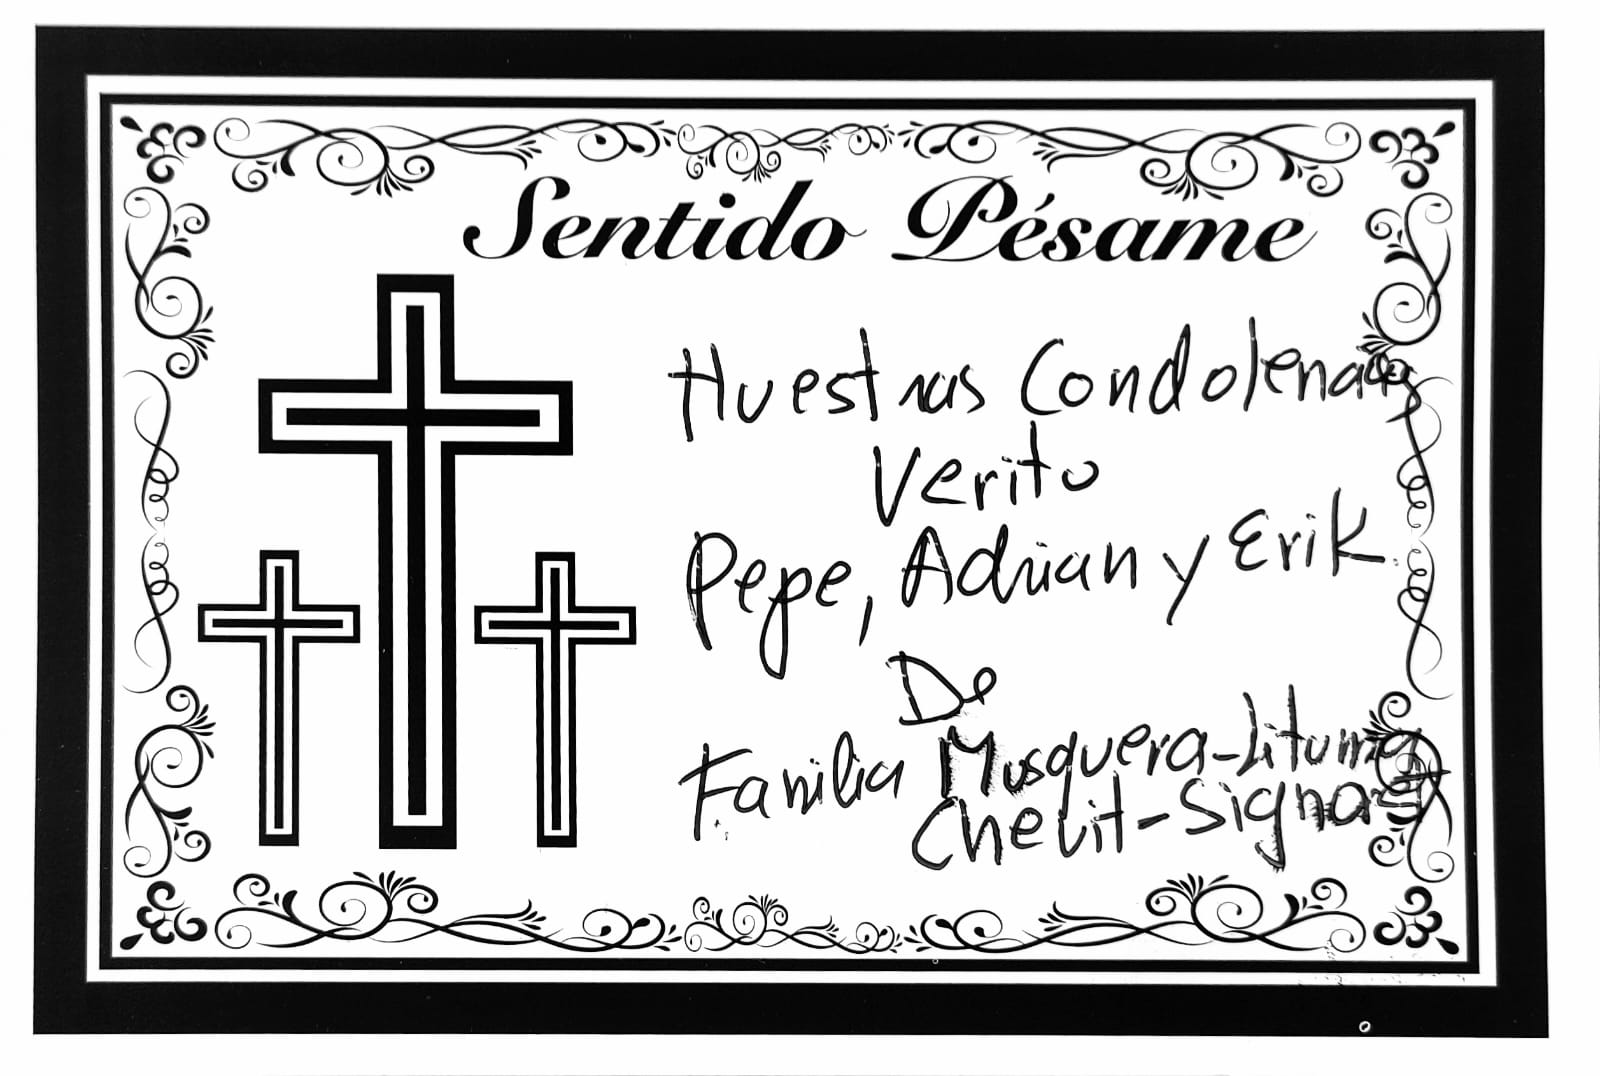 Sentido Pésame
Nuestras Condolencias
Verito
Pepe, Adrian y Erik.
De
Familia Mosquera-Lituma
Chevit-Signa